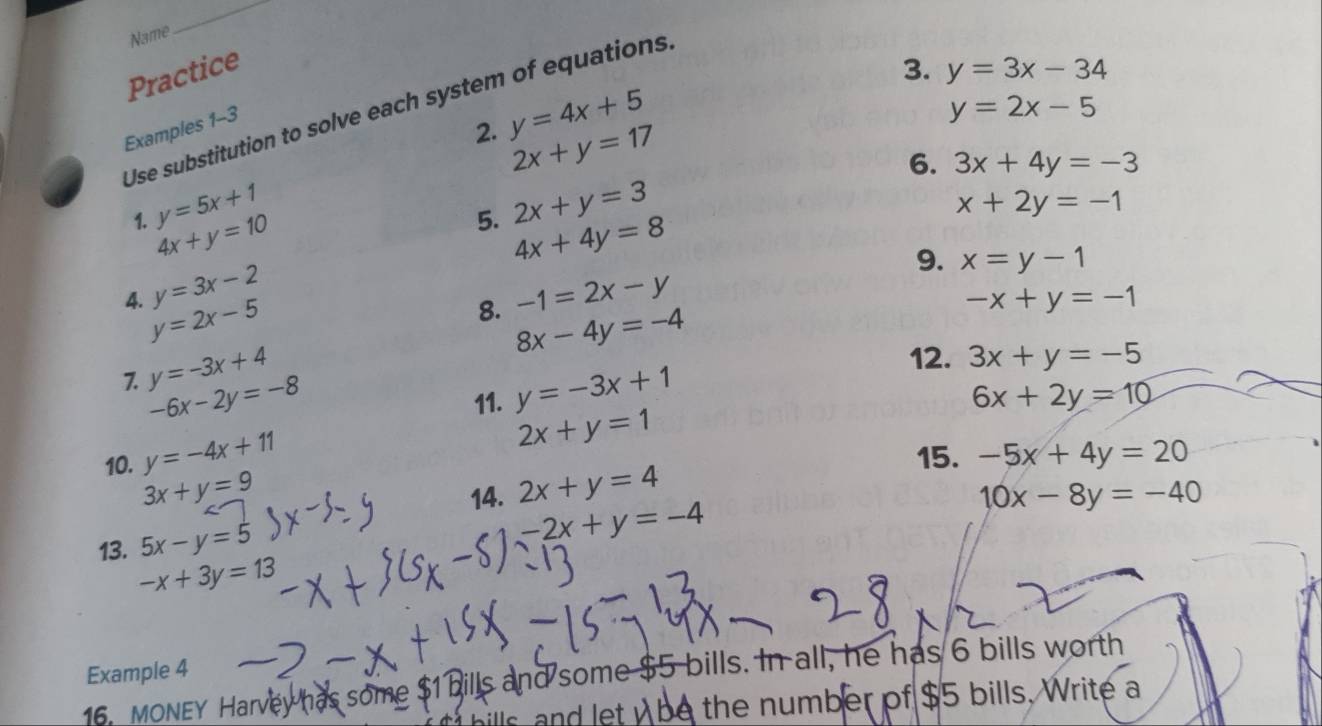 Name
Practice
Examples 1–3
Use substitution to solve each system of equations.
1. y = 5x + 1
4x + y = 10
2. y = 4x + 5
2x + y = 17
3. y = 3x − 34
y = 2x − 5
4. y = 3x − 2
y = 2x − 5
5. 2x + y = 3
4x + 4y = 8
6. 3x + 4y = −3
x + 2y = −1
7. y = −3x + 4
−6x − 2y = −8
8. −1 = 2x − y
8x − 4y = −4
9. x = y − 1
−x + y = −1
10. y = −4x + 11
3x + y = 9
11. y = −3x + 1
2x + y = 1
12. 3x + y = −5
6x + 2y = 10
13. 5x − y = 5
−x + 3y = 13
14. 2x + y = 4
−2x + y = −4
15. −5x + 4y = 20
10x − 8y = −40
5x − 5 = y
−x + 3(5x − 5) = 13
−x + 15x − 15 = 13
28
x = 2
Example 4
16. MONEY Harvey has some $1 bills and some $5 bills. In all, he has 6 bills worth
$1 bills and let y be the number of $5 bills. Write a